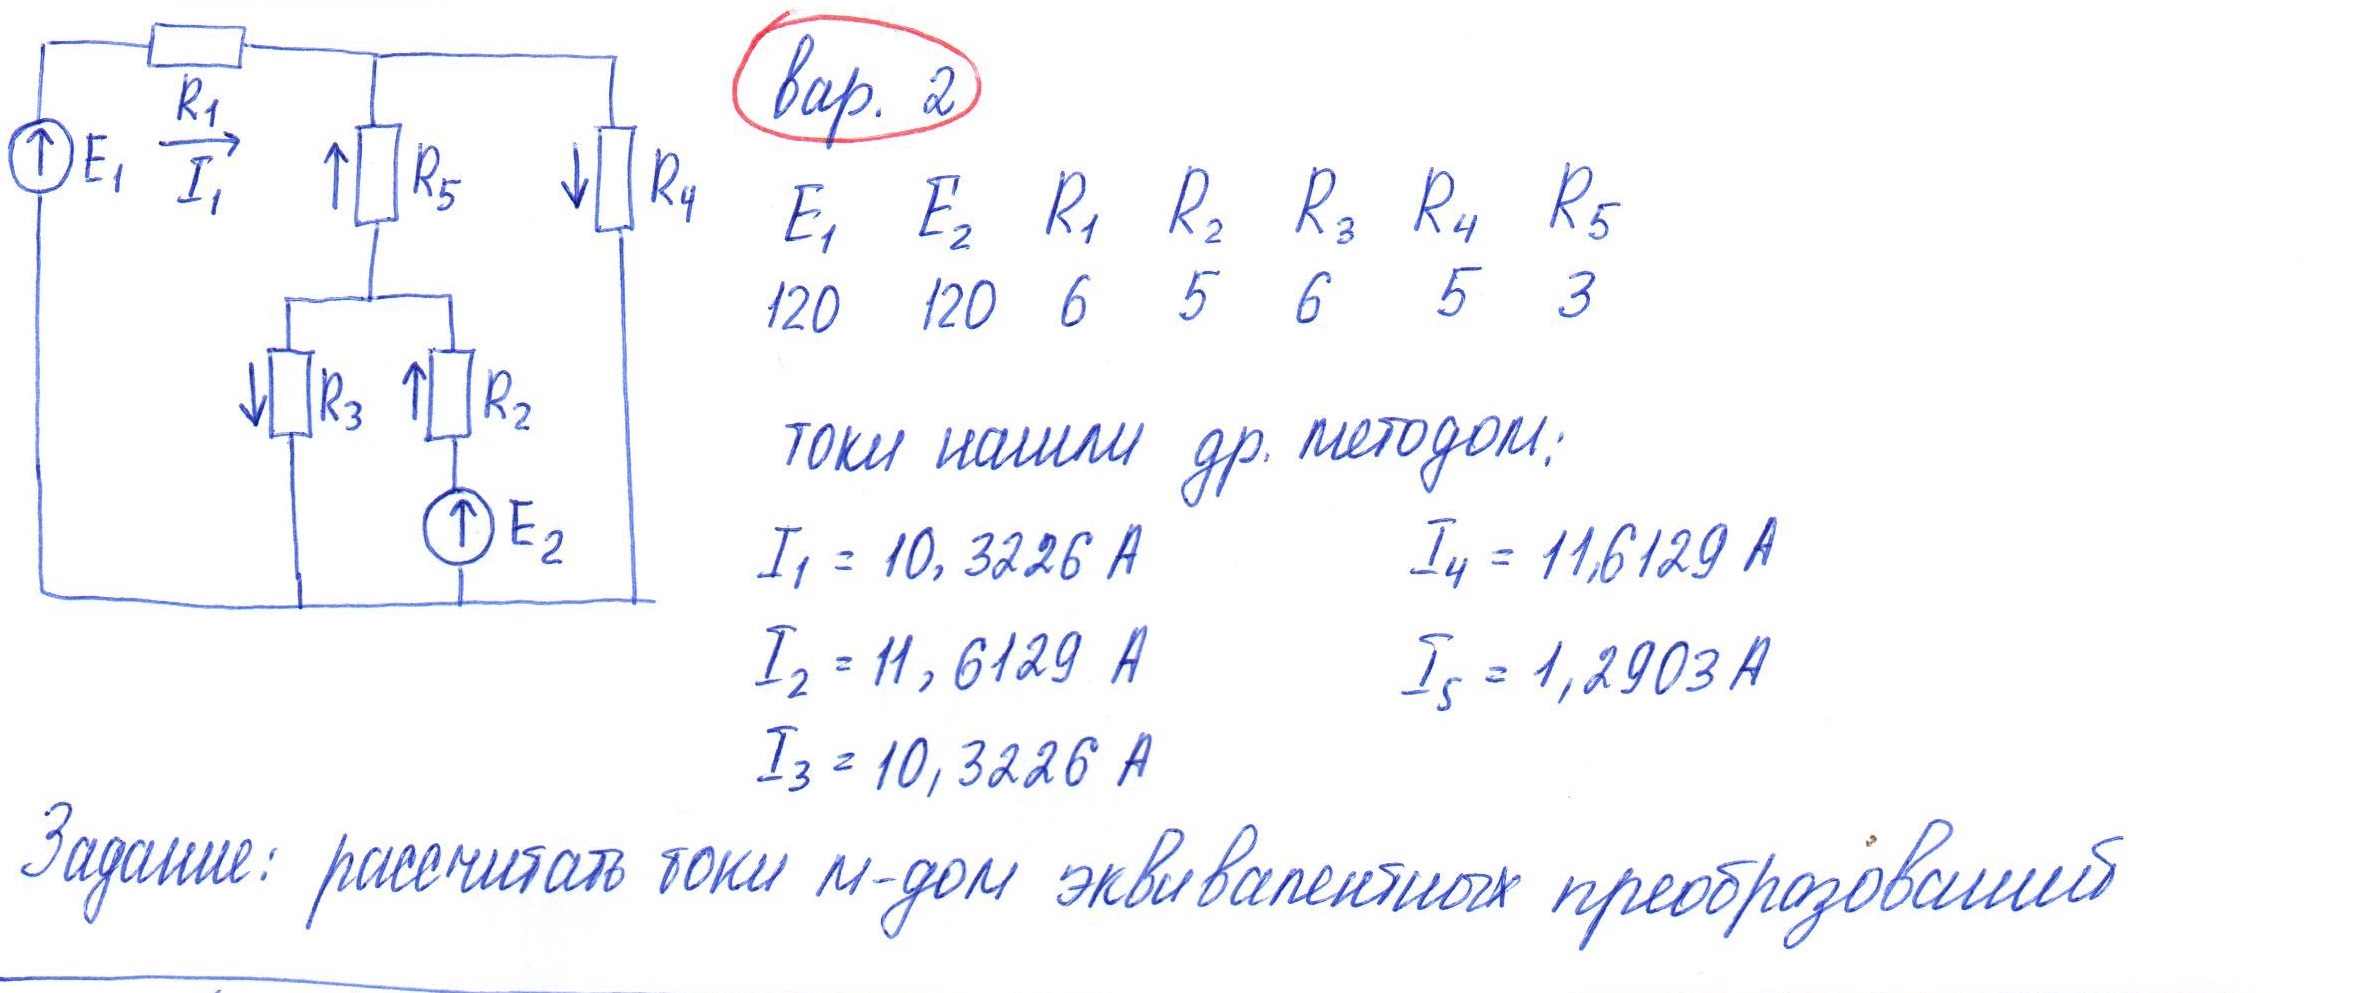 R1
I1
E1
R5
R4
R3
R2
E2
вар. 2
E1 E2 R1 R2 R3 R4 R5
120 120 6 5 6 5 3
токи нашли др. методом:
I1 = 10,3226 А I4 = 11,6129 А
I2 = 11,6129 А I5 = 1,2903 А
I3 = 10,3226 А
Задание: рассчитать токи м-дом эквивалентных преобразований